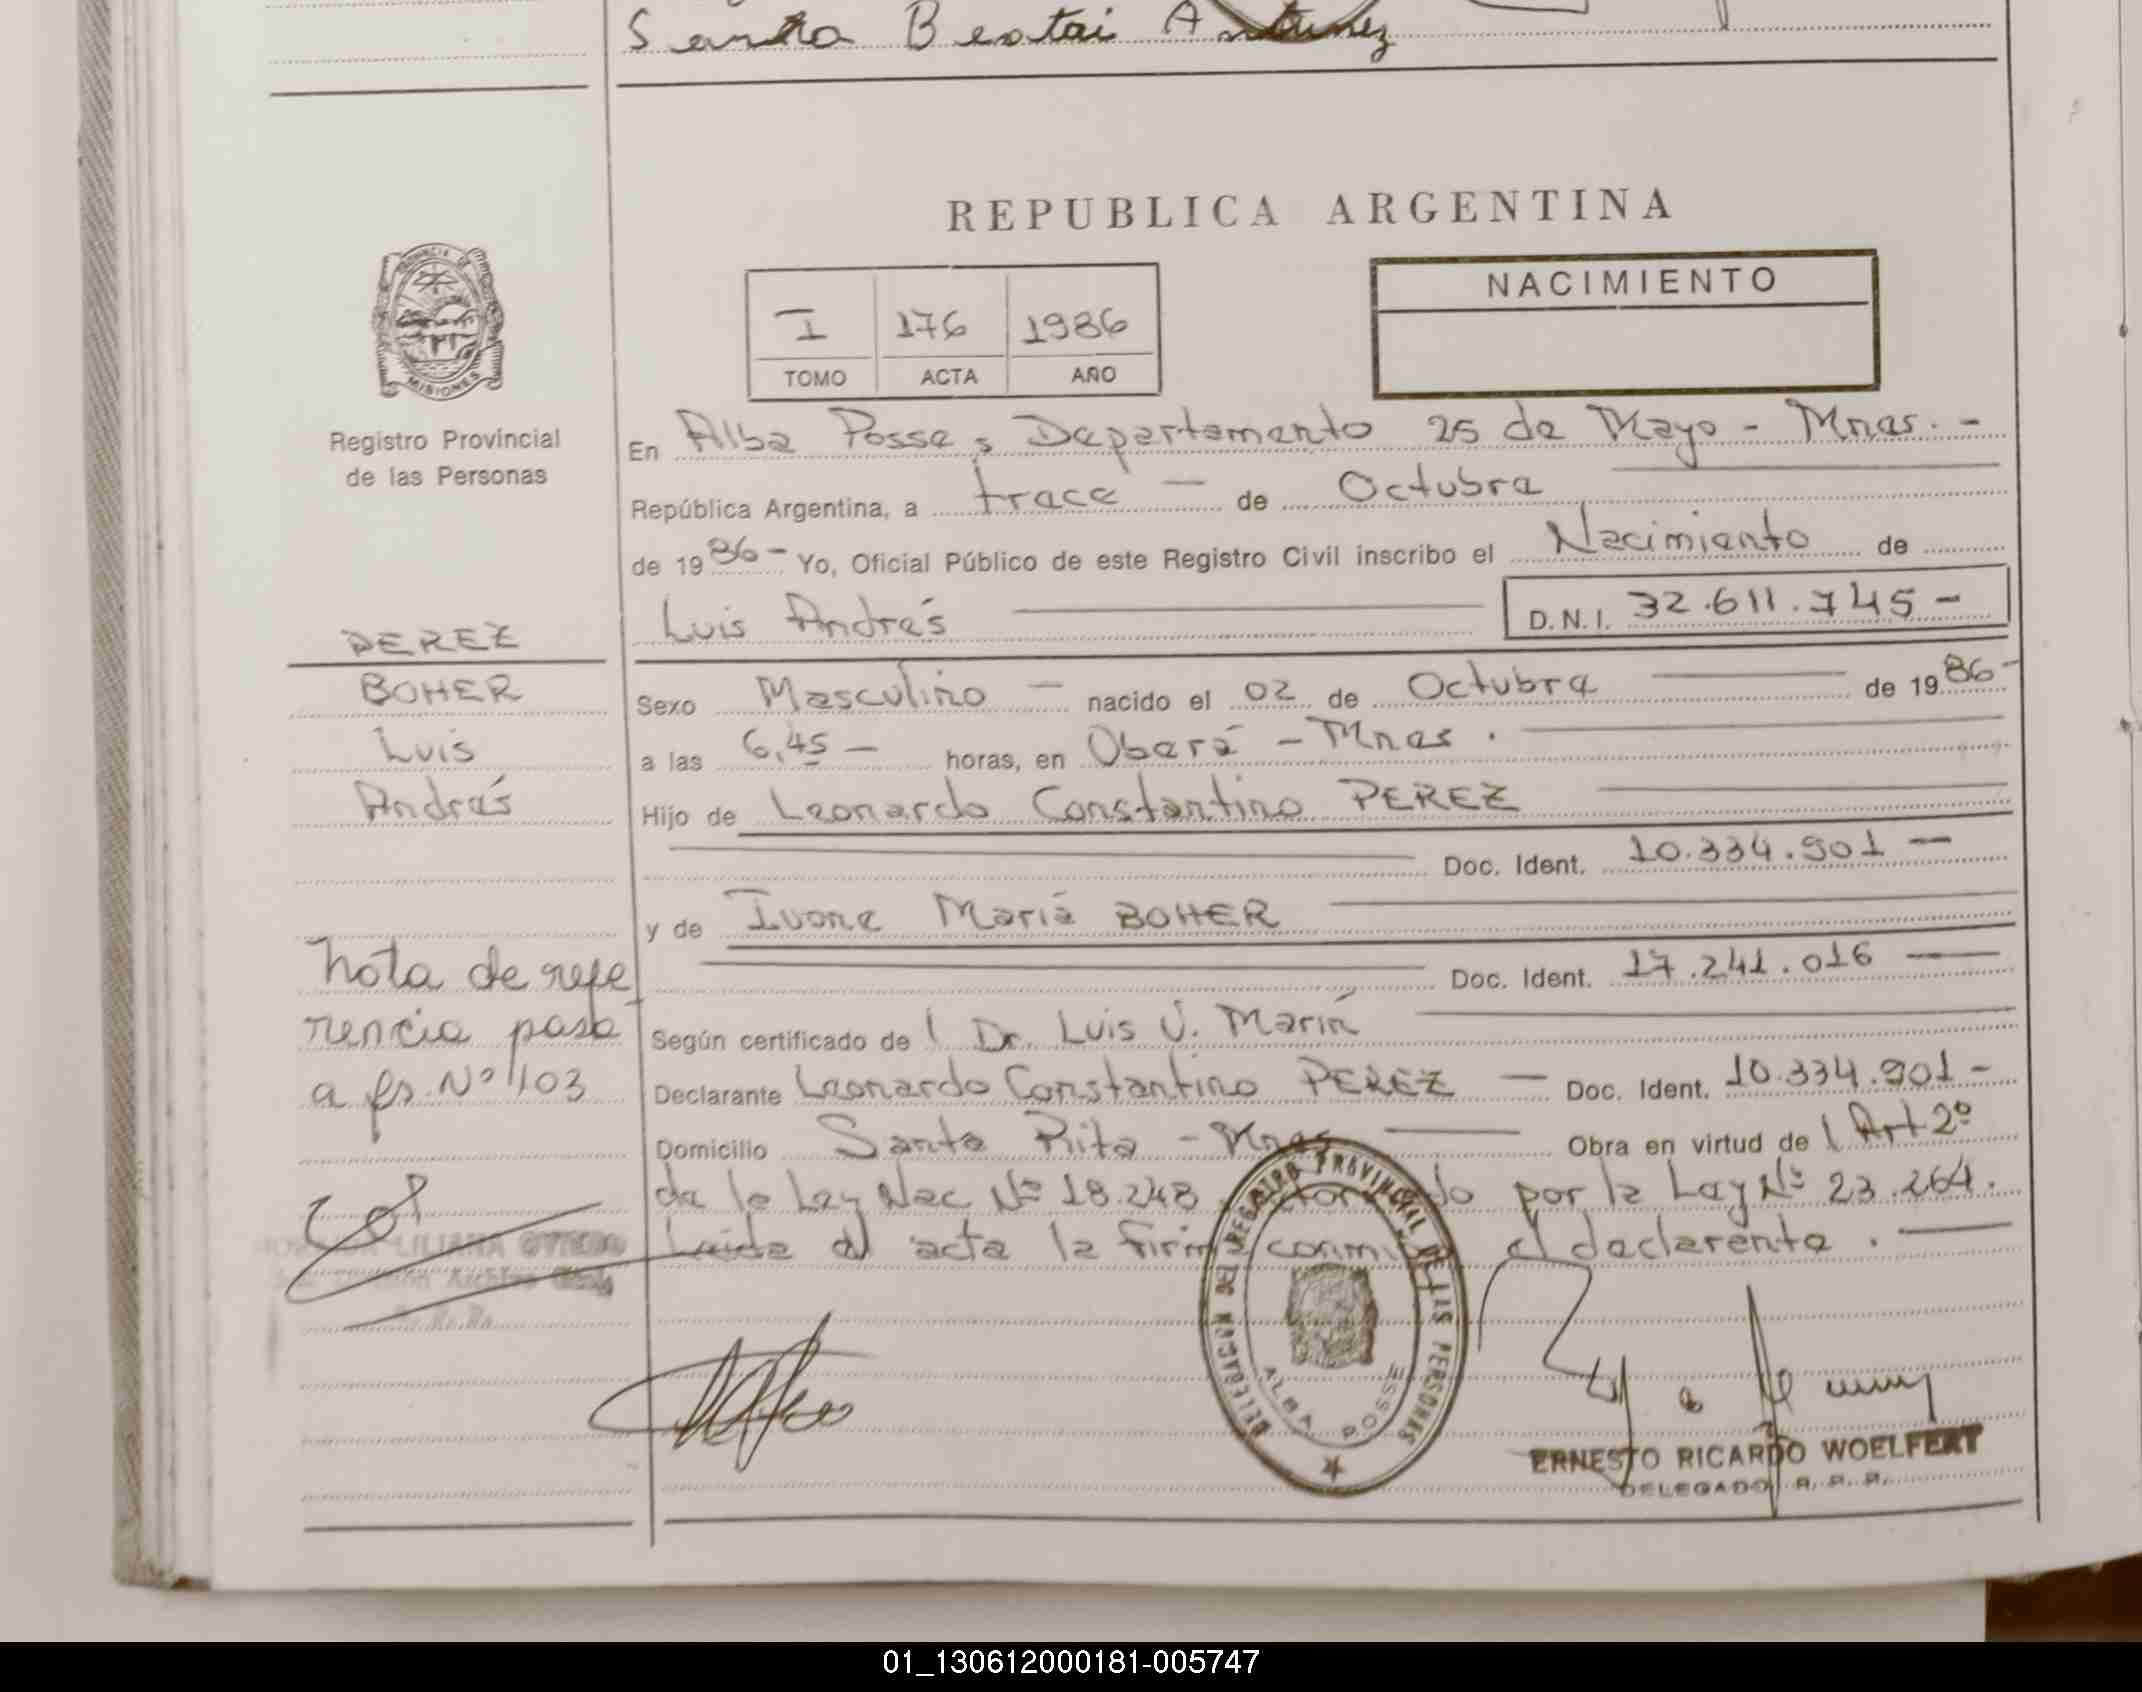 Santa Beatai Antunez
REPUBLICA ARGENTINA
PROVINCIA DE
MISIONES
Registro Provincial
de las Personas
NACIMIENTO
I 176 1986
TOMO ACTA AÑO
En Alba Posse, Departamento 25 de Mayo - Mnes. -
República Argentina, a trece — de Octubre
de 1986- Yo, Oficial Público de este Registro Civil inscribo el Nacimiento de
Luis Andrés D.N.I. 32.611.745-
PEREZ
BOHER
Luis
Andrés
Sexo Masculino — nacido el 02 de Octubre de 1986-
a las 6,45 — horas, en Oberá - Mnes.
Hijo de Leonardo Constantino PEREZ
Doc. Ident. 10.334.901 —
y de Ivone María BOHER
Doc. Ident. 17.241.016 —
nota de refe-
rencia pasa
a fs. Nº 103
Según certificado del Dr. Luis V. Marín
Declarante Leonardo Constantino PEREZ — Doc. Ident. 10.334.901-
Domicilio Santa Rita - Mnes — Obra en virtud del Art 2º
de la Ley Nac Nº 18.248 por la Ley Nº 23.264.
Leída el acta la firma conmigo el declarante. —
LILIANA OVIEDO
Archivo
DELEGACION DEL REGISTRO PROVINCIAL DE LAS PERSONAS
ALBA POSSE
ERNESTO RICARDO WOELFERT
DELEGADO R. P. P.
01_130612000181-005747